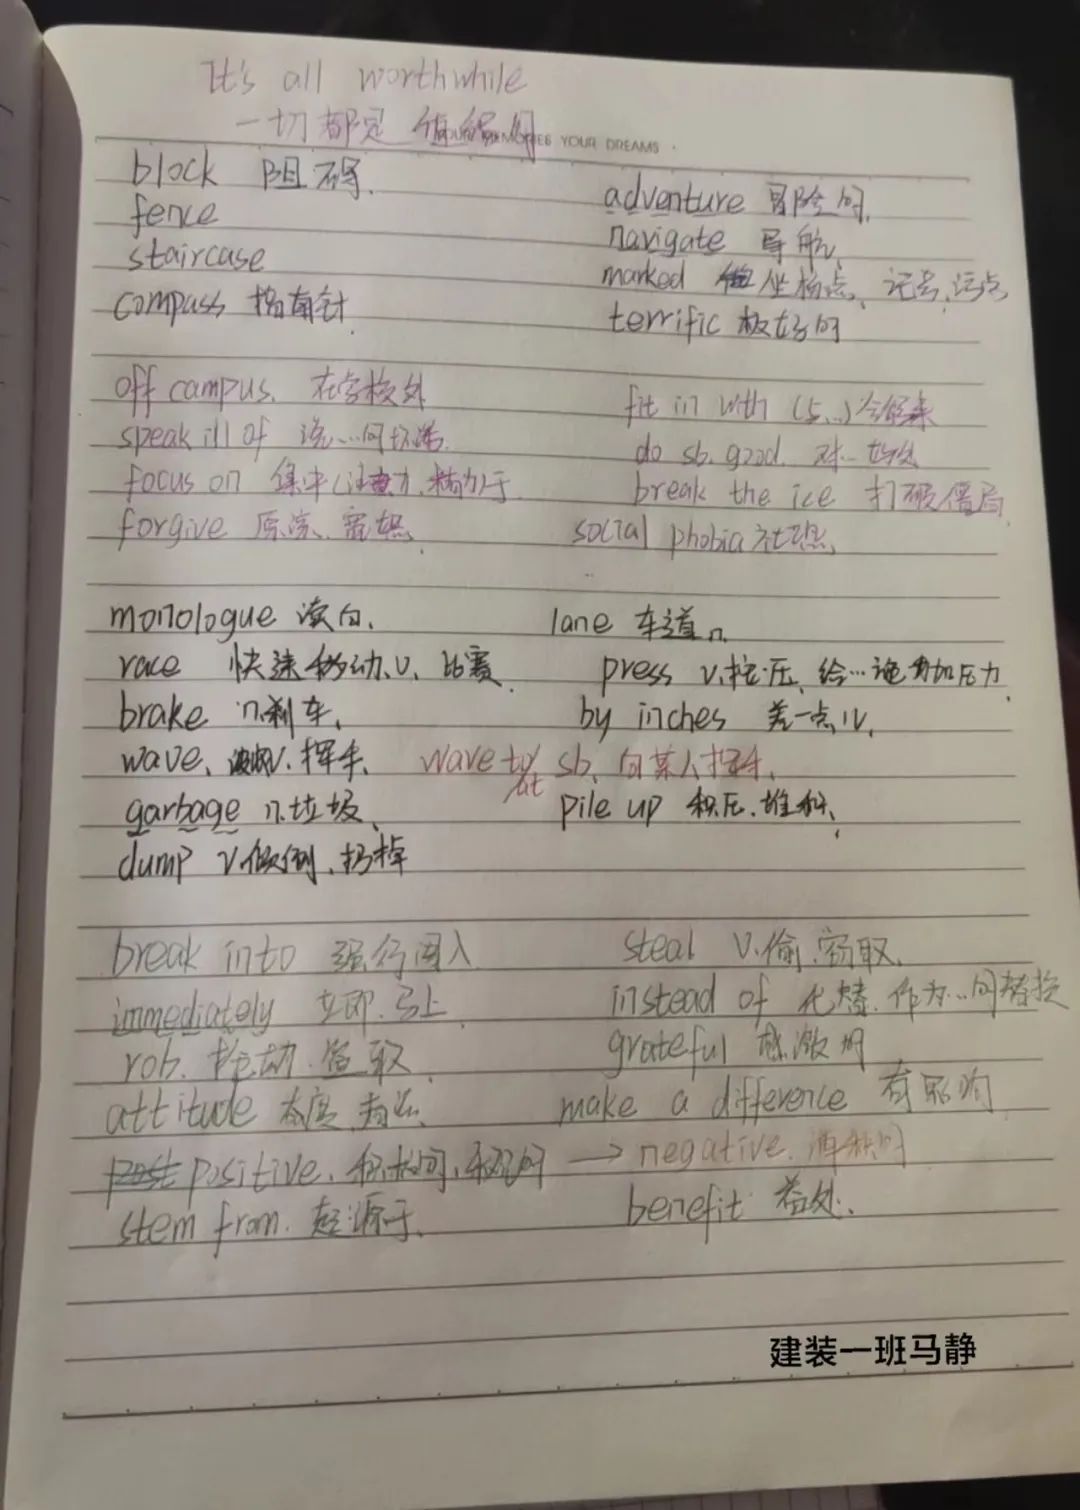 It's all worthwhile
一切都是值得的
YOUR DREAMS
block 阻碍.
adventure 冒险的.
fence
navigate 导航.
staircase
marked 坐标点、记号、污点
compass 指南针
terrific 极好的
off campus. 在学校外
fit in with (与...)
speak ill of 说...的坏话.
do sb. good. 对...好处
focus on 集中(注意力、精力)于
break the ice 打破僵局.
forgive 原谅、宽恕.
social phobia 社恐.
monologue 读白.
lane 车道n.
race 快速移动.v. 比赛
press v.按.压、给...施加压力.
brake n.刹车.
by inches 差一点儿.
wave、v.挥手、 wave to/at sb、向某人挥手.
garbage n.垃圾、
pile up 积压.堆积、
dump v.倾倒、扔掉
break into 强行闯入
steal v.偷.窃取.
immediately 立即.马上
instead of 代替.作为...的替换
rob. 抢劫.盗取
grateful 感激的
attitude 态度.看法.
make a difference 有影响
post positive. 积极的、乐观的 → negative. 消极的
stem from. 起源于.
benefit 益处.
建装一班马静